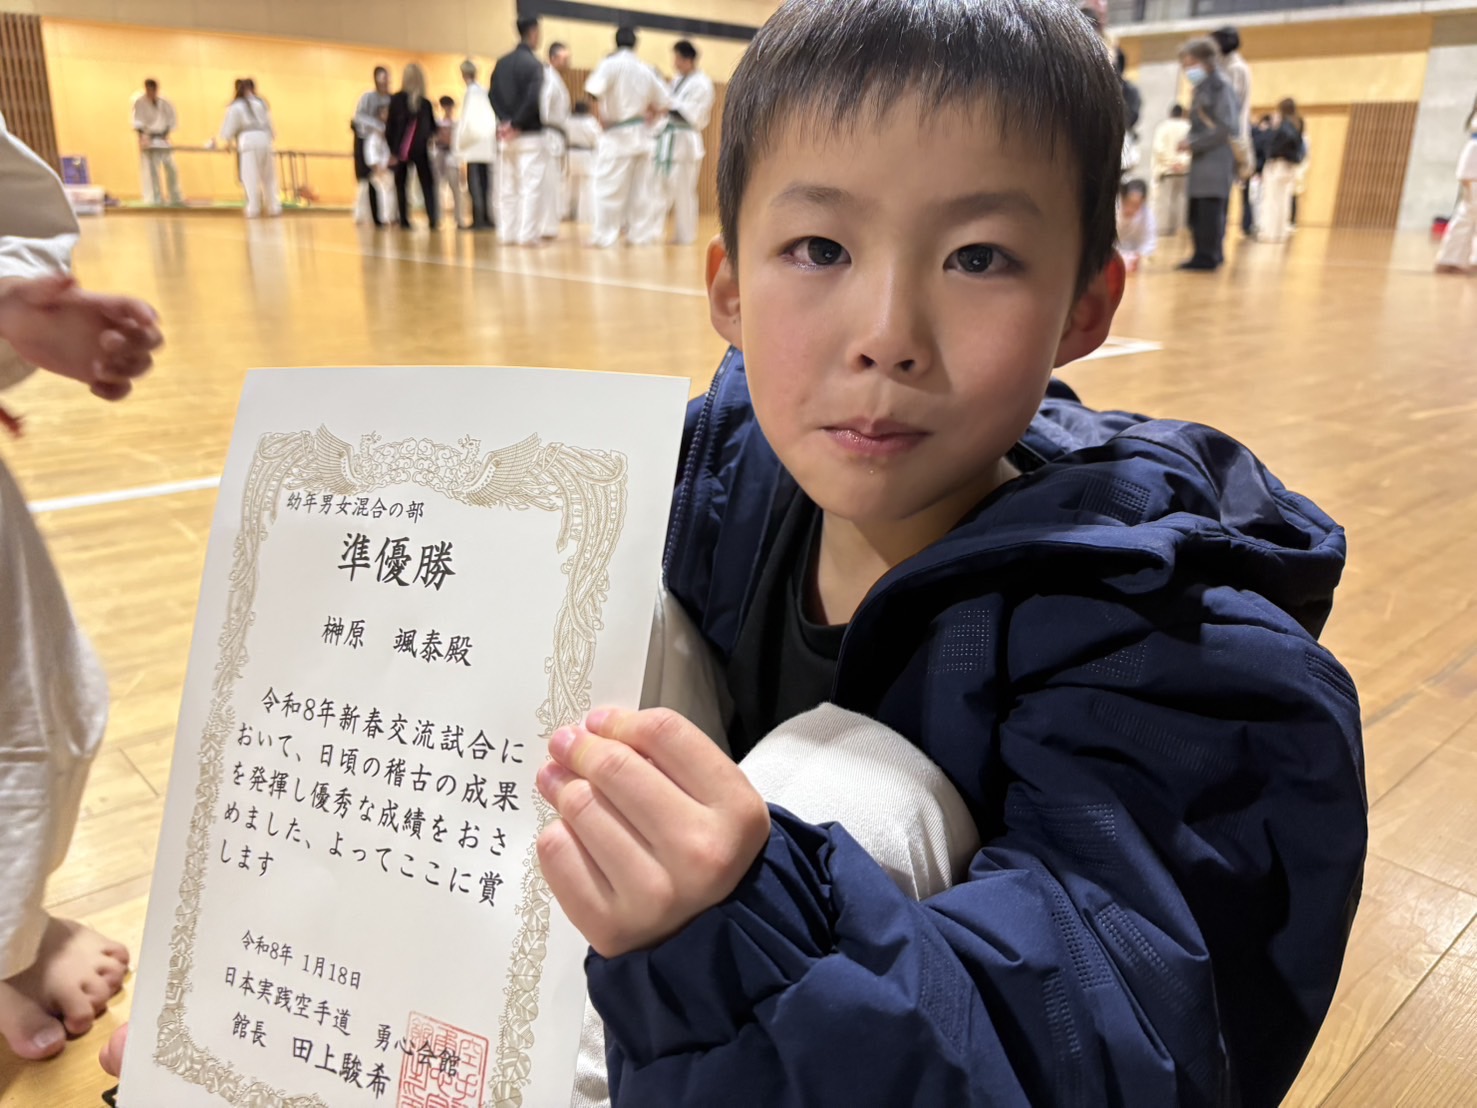 幼年男女混合の部
準優勝
榊原 颯泰殿
令和8年新春交流試合に
おいて、日頃の稽古の成果
を発揮し優秀な成績をおさ
めました、よってここに賞
します
令和8年 1月18日
日本実践空手道 勇心会館
館長 田上駿希